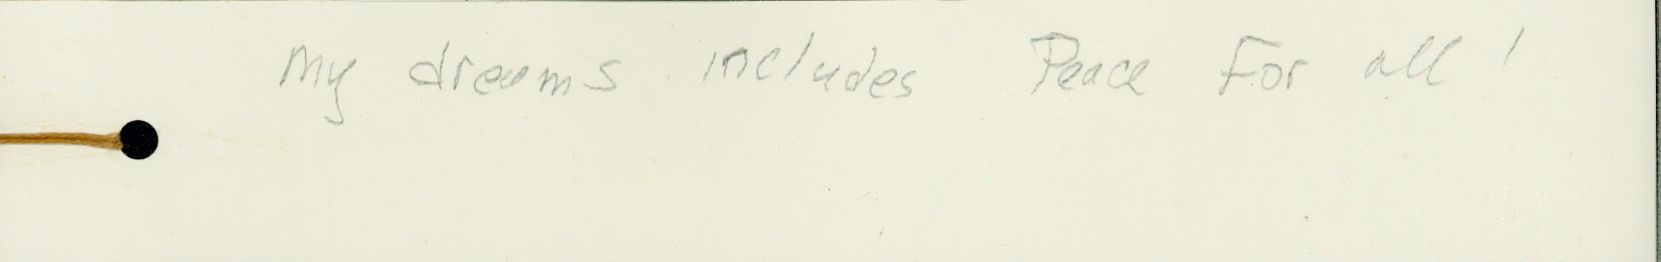 My dreams includes Peace For all !